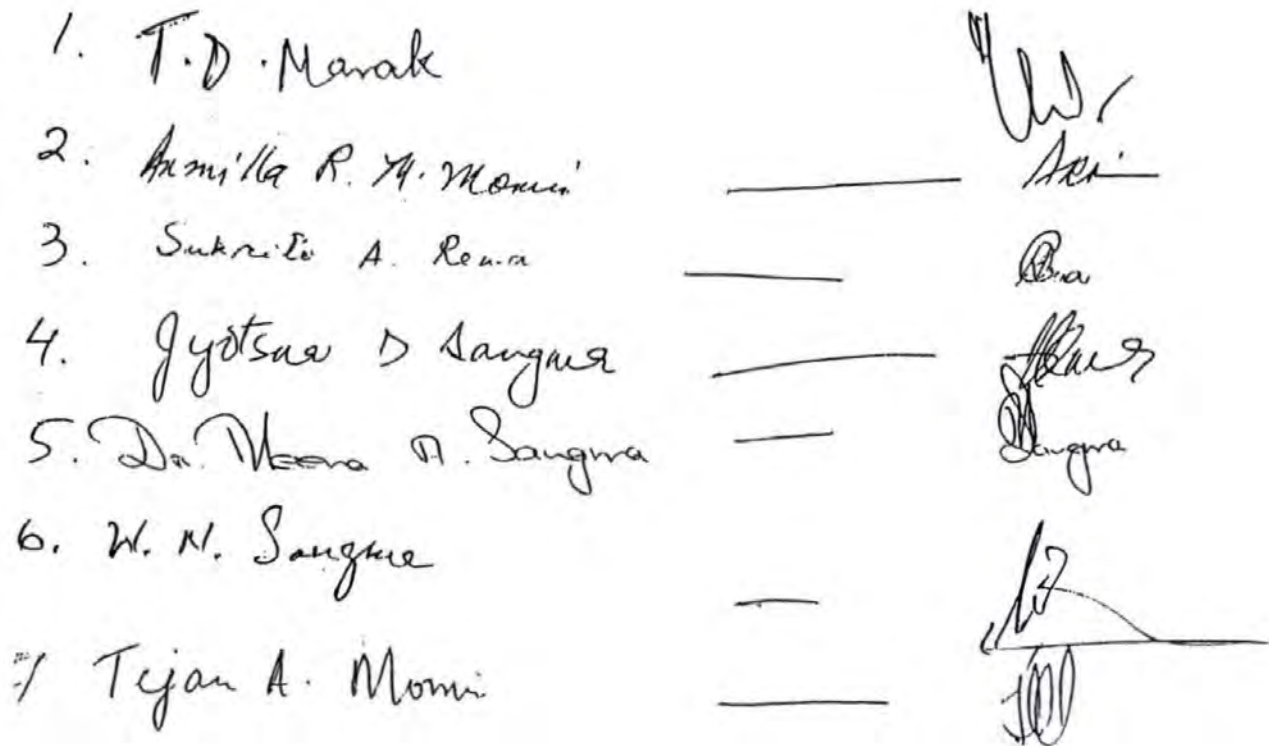 1. T.D. Marak
2. Armilla R. M. Momin
3. Sukriti A. Rema
4. Jyotsna D Sangma
5. Dr. Meena A. Sangma Sangma
6. W. N. Sangma
7 Tejan A. Momin